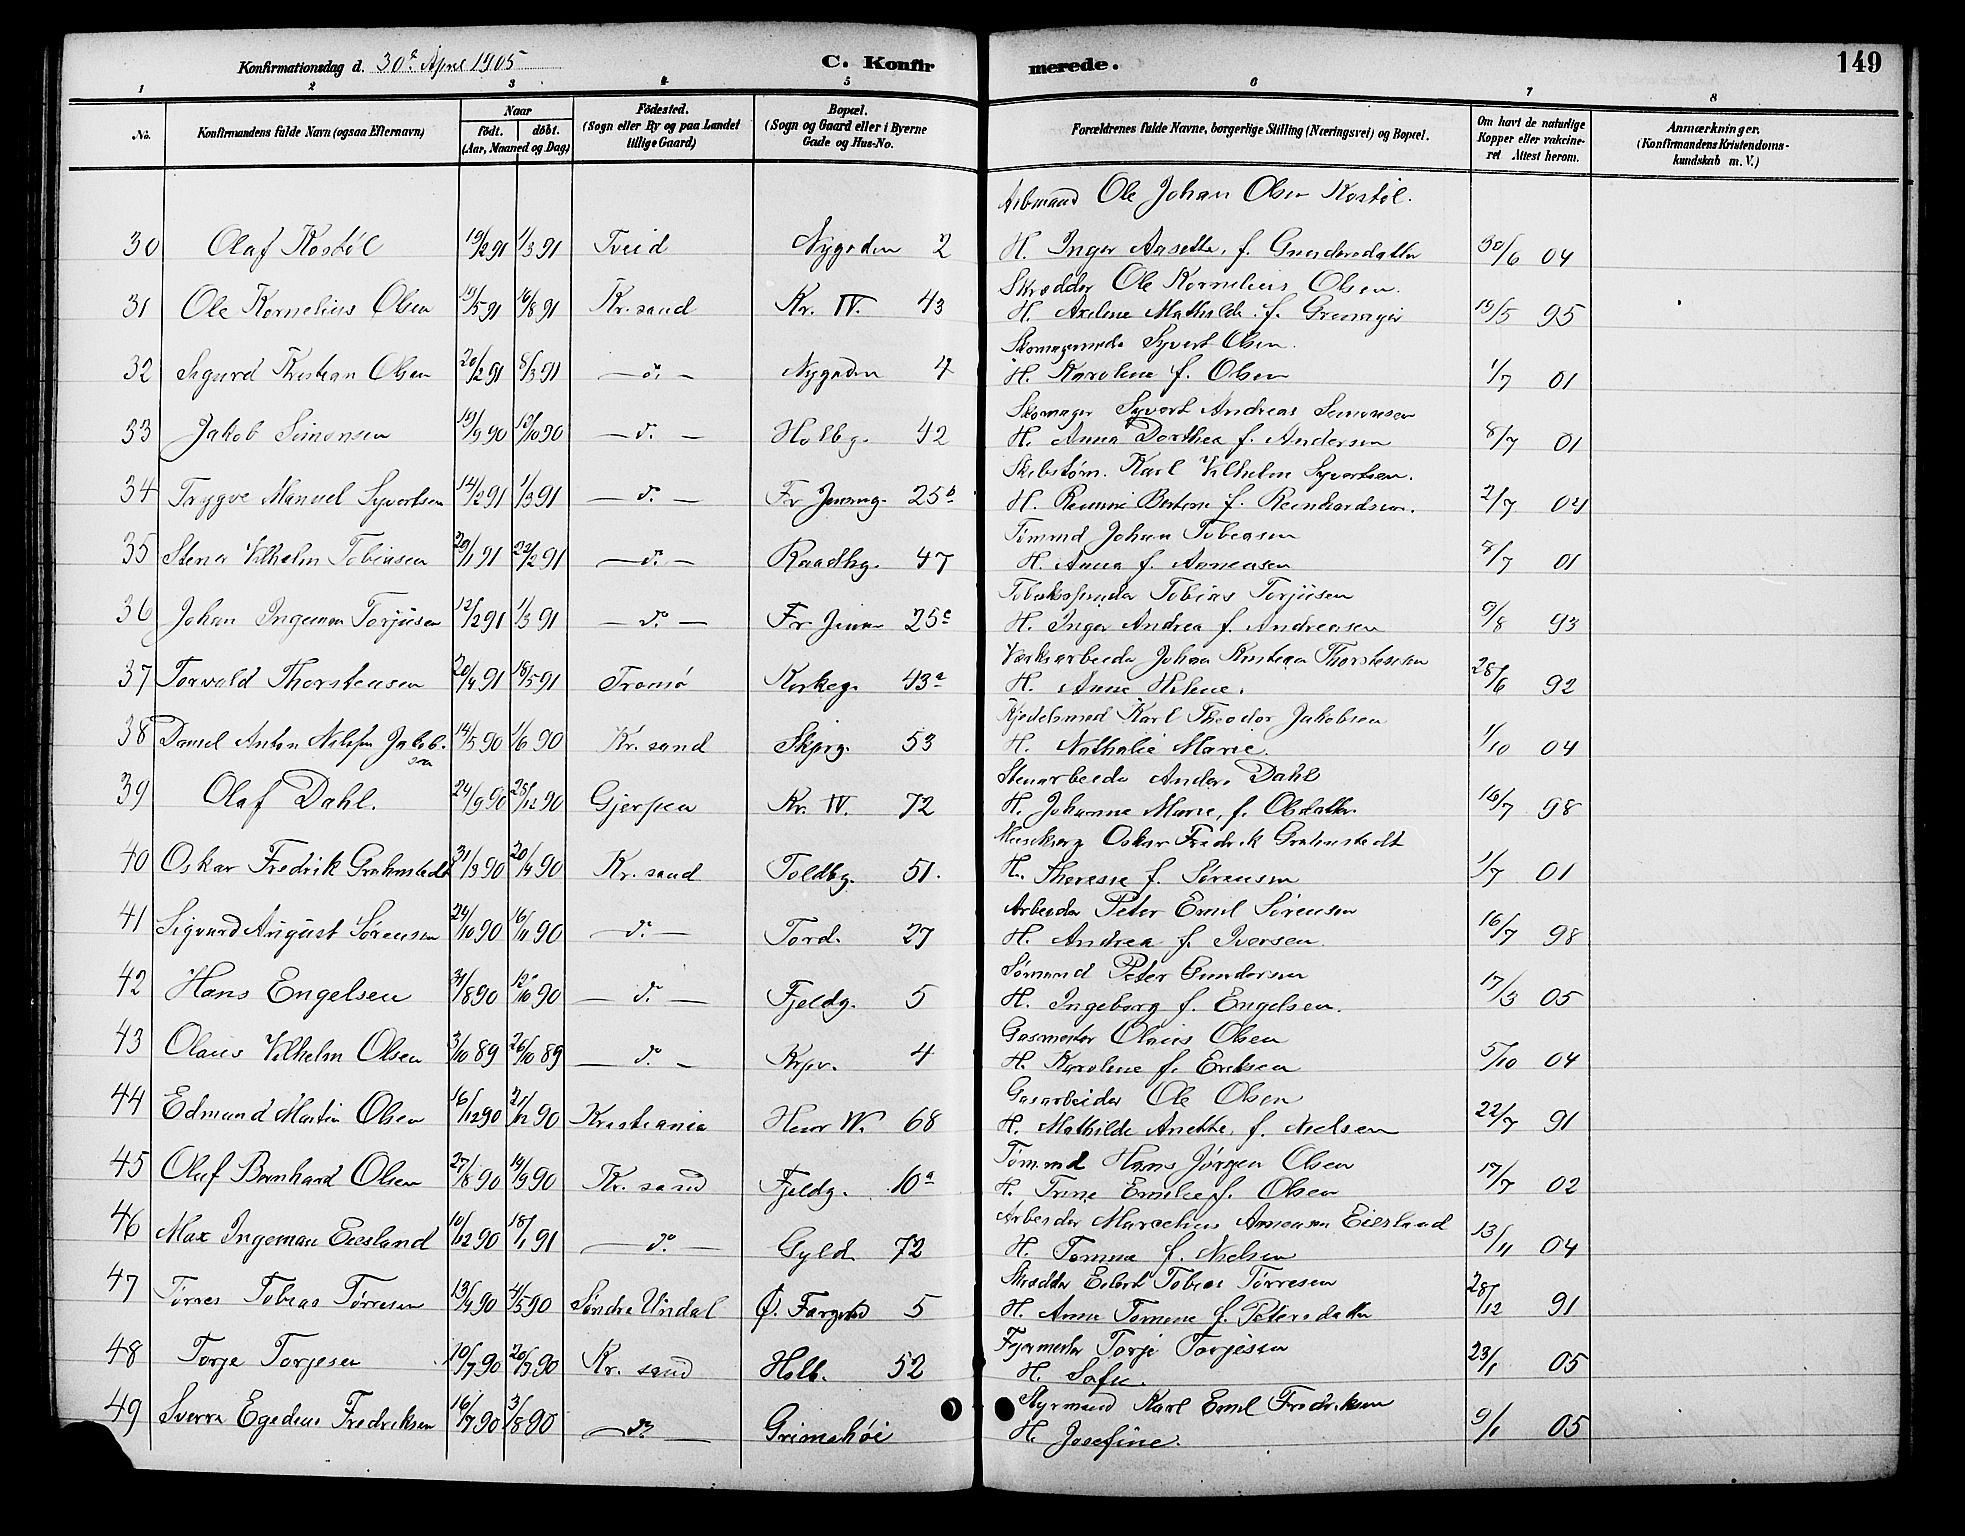 Konfirmationsdag d. 30te April 1905
C. Konfirmerede.
149
1 2 3 4 5 6 7 8
No. Konfirmandens fulde Navn (ogsaa Efternavn) Naar født. døbt. (Aar, Maaned og Dag) Fødested. (Sogn eller By og paa Landet tillige Gaard) Bopæl. (Sogn og Gaard eller i Byerne Gade og Hus-No. Forældrenes fulde Navne, borgerlige Stilling (Næringsvei) og Bopæl. Om havt de naturlige Kopper eller vakcineret Attest herom. Anmærkninger. (Konfirmandens Kristendomskundskab m. V.)
Arbmand Ole Johan Olsen Kostøl.
30 Olaf Kostøl 19/2 91 1/3 91 Tveid Nygaden 2 H. Inger Aasette, f. Gundersdatter 30/6 04
Skrædder Ole Kornelius Olsen.
31 Ole Kornelius Olsen 19/5 91 16/8 91 Kr.sand Kr. IV. 43 H. Axeline Mathilde f. 19/5 95
Syvert Olsen.
32 Sigurd Kristian Olsen 20/2 91 8/3 91 — do. — Nygaden 4 H. Karoline f. Olsen 1/7 01
Skomager Syvert Andreas Simonsen
33 Jakob Simonsen 19/9 90 12/10 90 — do. — Holbg. 42 H. Anna Dorthea f. Andersen 8/7 01
Skibstøm. Karl Vilhelm Syvertsen.
34 Trygve Manuel Syvertsen 14/2 91 1/3 91 — do. — Fr 25b H. f. Reinhardsen. 2/7 04
Tømmd Johan Tobiasen
35 Vilhelm Tobiasen 20/1 91 22/2 91 — do. — Raadhg. 47 H. Anna f. Aanensen 8/7 01
Tobaksspinder Tobias Torjusen
36 Johan Ingeman Torjusen 12/2 91 1/3 91 — do. — Fr 25c H. Inger Andrea f. Andreasen 9/8 93
Verksarbeider Johan Kristian Thorstensen
37 Torvald Thorstensen 20/4 91 18/5 91 Tromsø Kirkeg. 43a H. Anne Helene. 28/6 92
Kjedelsmed Karl Theodor Jakobsen
38 Daniel Anton Nilssen Jakobsen 14/5 90 1/6 90 Kr.sand Skjpg. 53 H. Nathalie Marie. 1/10 04
Stenarbeider Anders Dahl
39 Olaf Dahl. 24/9 90 25/12 90 Gjerpen Kr. IV. 72 H. Johanne Marie, f. Olsdatter. 16/7 98
Oskar Fredrik Grahnstedt
40 Oskar Fredrik Grahnstedt 31/3 90 20/4 90 Kr.sand Toldbg. 51. H. Therese f. Sørensen 1/7 01
Arbeider Peter Emil Sørensen
41 Sigvard August Sørensen 24/10 90 16/11 90 — do. — Tord. 27 H. Andrea f. Iversen. 16/7 98
Sømand Peter Gundersen
42 Hans Engelsen 31/8 90 12/10 90 — do. — Fjeldg. 5 H. Ingeborg f. Engelsen. 17/3 05
Gasmester Olaus Olsen
43 Olaus Vilhelm Olsen 3/10 89 26/10 89 — do. — Krpv. 4 H. Karoline f. Eriksen 5/10 04
Gasarbeider Ole Olsen
44 Edmund Martin Olsen 16/12 90 21/12 90 Kristiania Henr W. 68 H. Mathilde Anette, f. Nielsen 22/7 91
Tømmd Hans Jørgen Olsen
45 Oluf Bernhard Olsen 27/8 90 14/9 90 Kr.sand Fjeldg. 10a H. Trine Emilie f. Olsen 17/7 02
Arbeider Marcelius Aanensen Eiesland
46 Max Ingeman Eiesland 10/12 90 18/1 91 — do. — Gyld. 72 H. Tomine f. Nielsen 13/11 04
Skrædder Eilert Tobias Tørresen
47 Tørres Tobias Tørresen 13/4 90 4/5 90 Søndre Undal Ø. 5 H. Anne Tomine f. Petersdatter 28/12 91
Fyrmester Torje Torjesen
48 Torje Torjesen 10/7 90 20/7 90 Kr.sand Holb. 52 H. Sofie. 23/1 05
Styrmand Karl Emil Fredriksen
49 Sverre Egedius Fredriksen 16/7 90 3/8 90 — do. — Grimshøi H. Josefine. 9/1 05